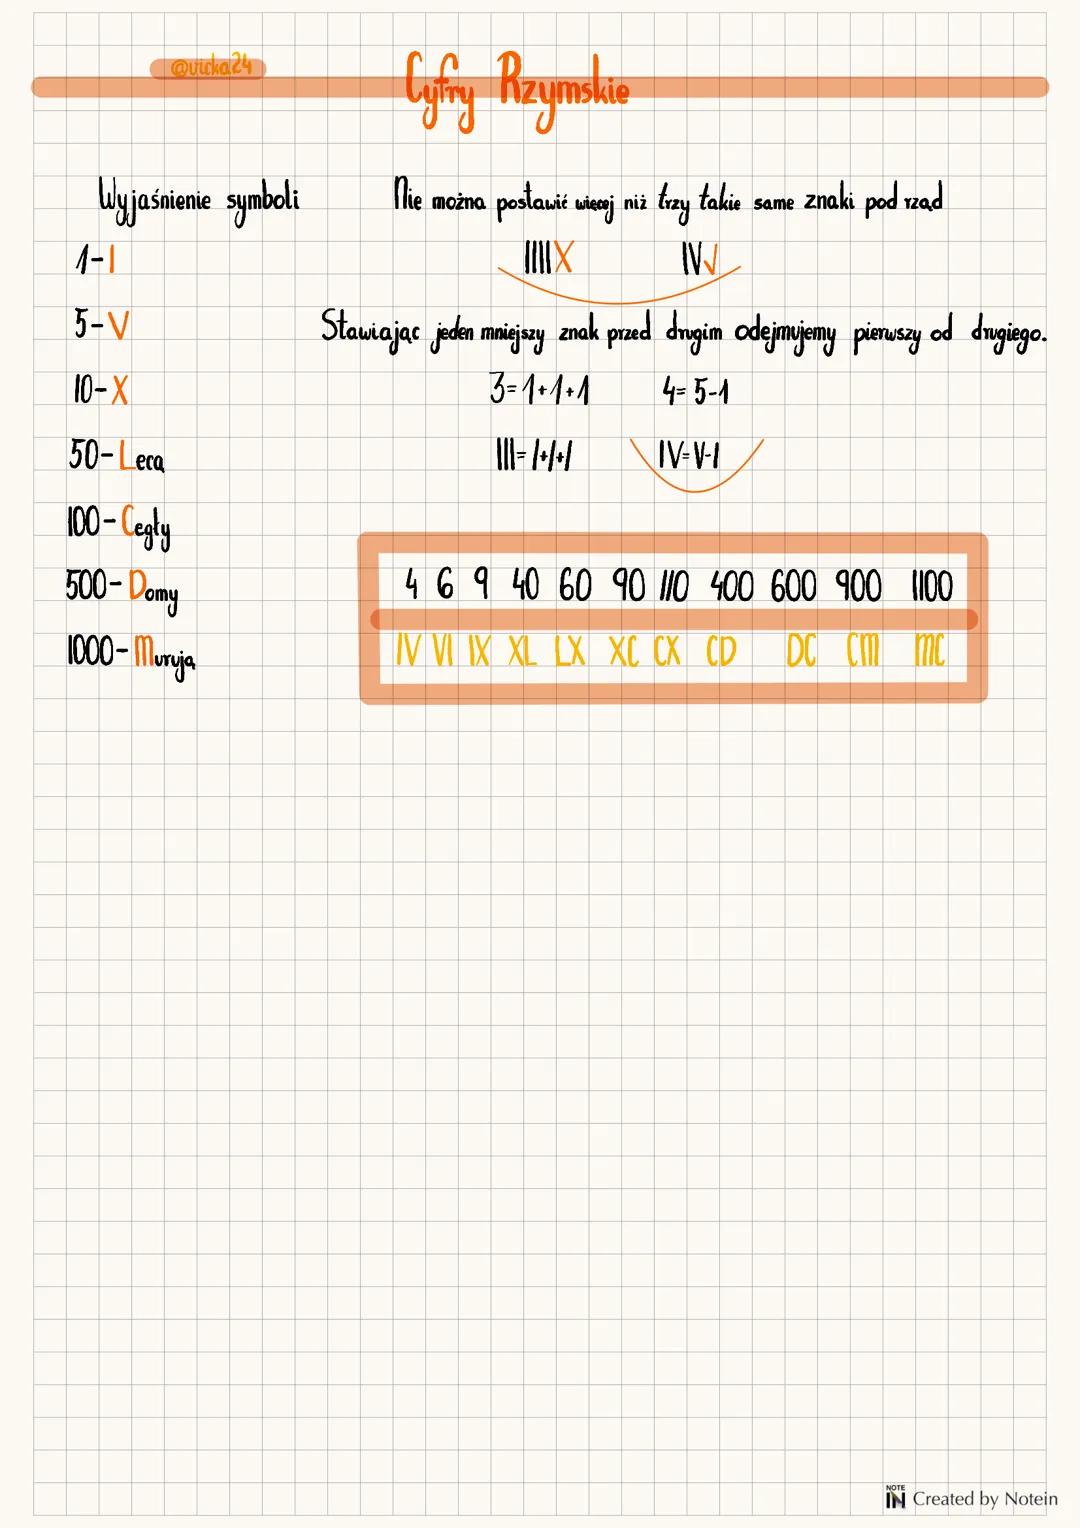 @vicka24
Cyfry Rzymskie
Wyjaśnienie symboli
1-I
5-V
10-X
50-Lecą
100-Cegły
500-Domy
1000-Murują
Nie można postawić więcej niż trzy takie same znaki pod rząd
IIII X IV √
Stawiając jeden mniejszy znak przed drugim odejmujemy pierwszy od drugiego.
3=1+1+1 4=5-1
III=I+I+I IV=V-I
4 6 9 40 60 90 110 400 600 900 1100
IV VI IX XL LX XC CX CD DC CM MC
NOTE
IN Created by Notein